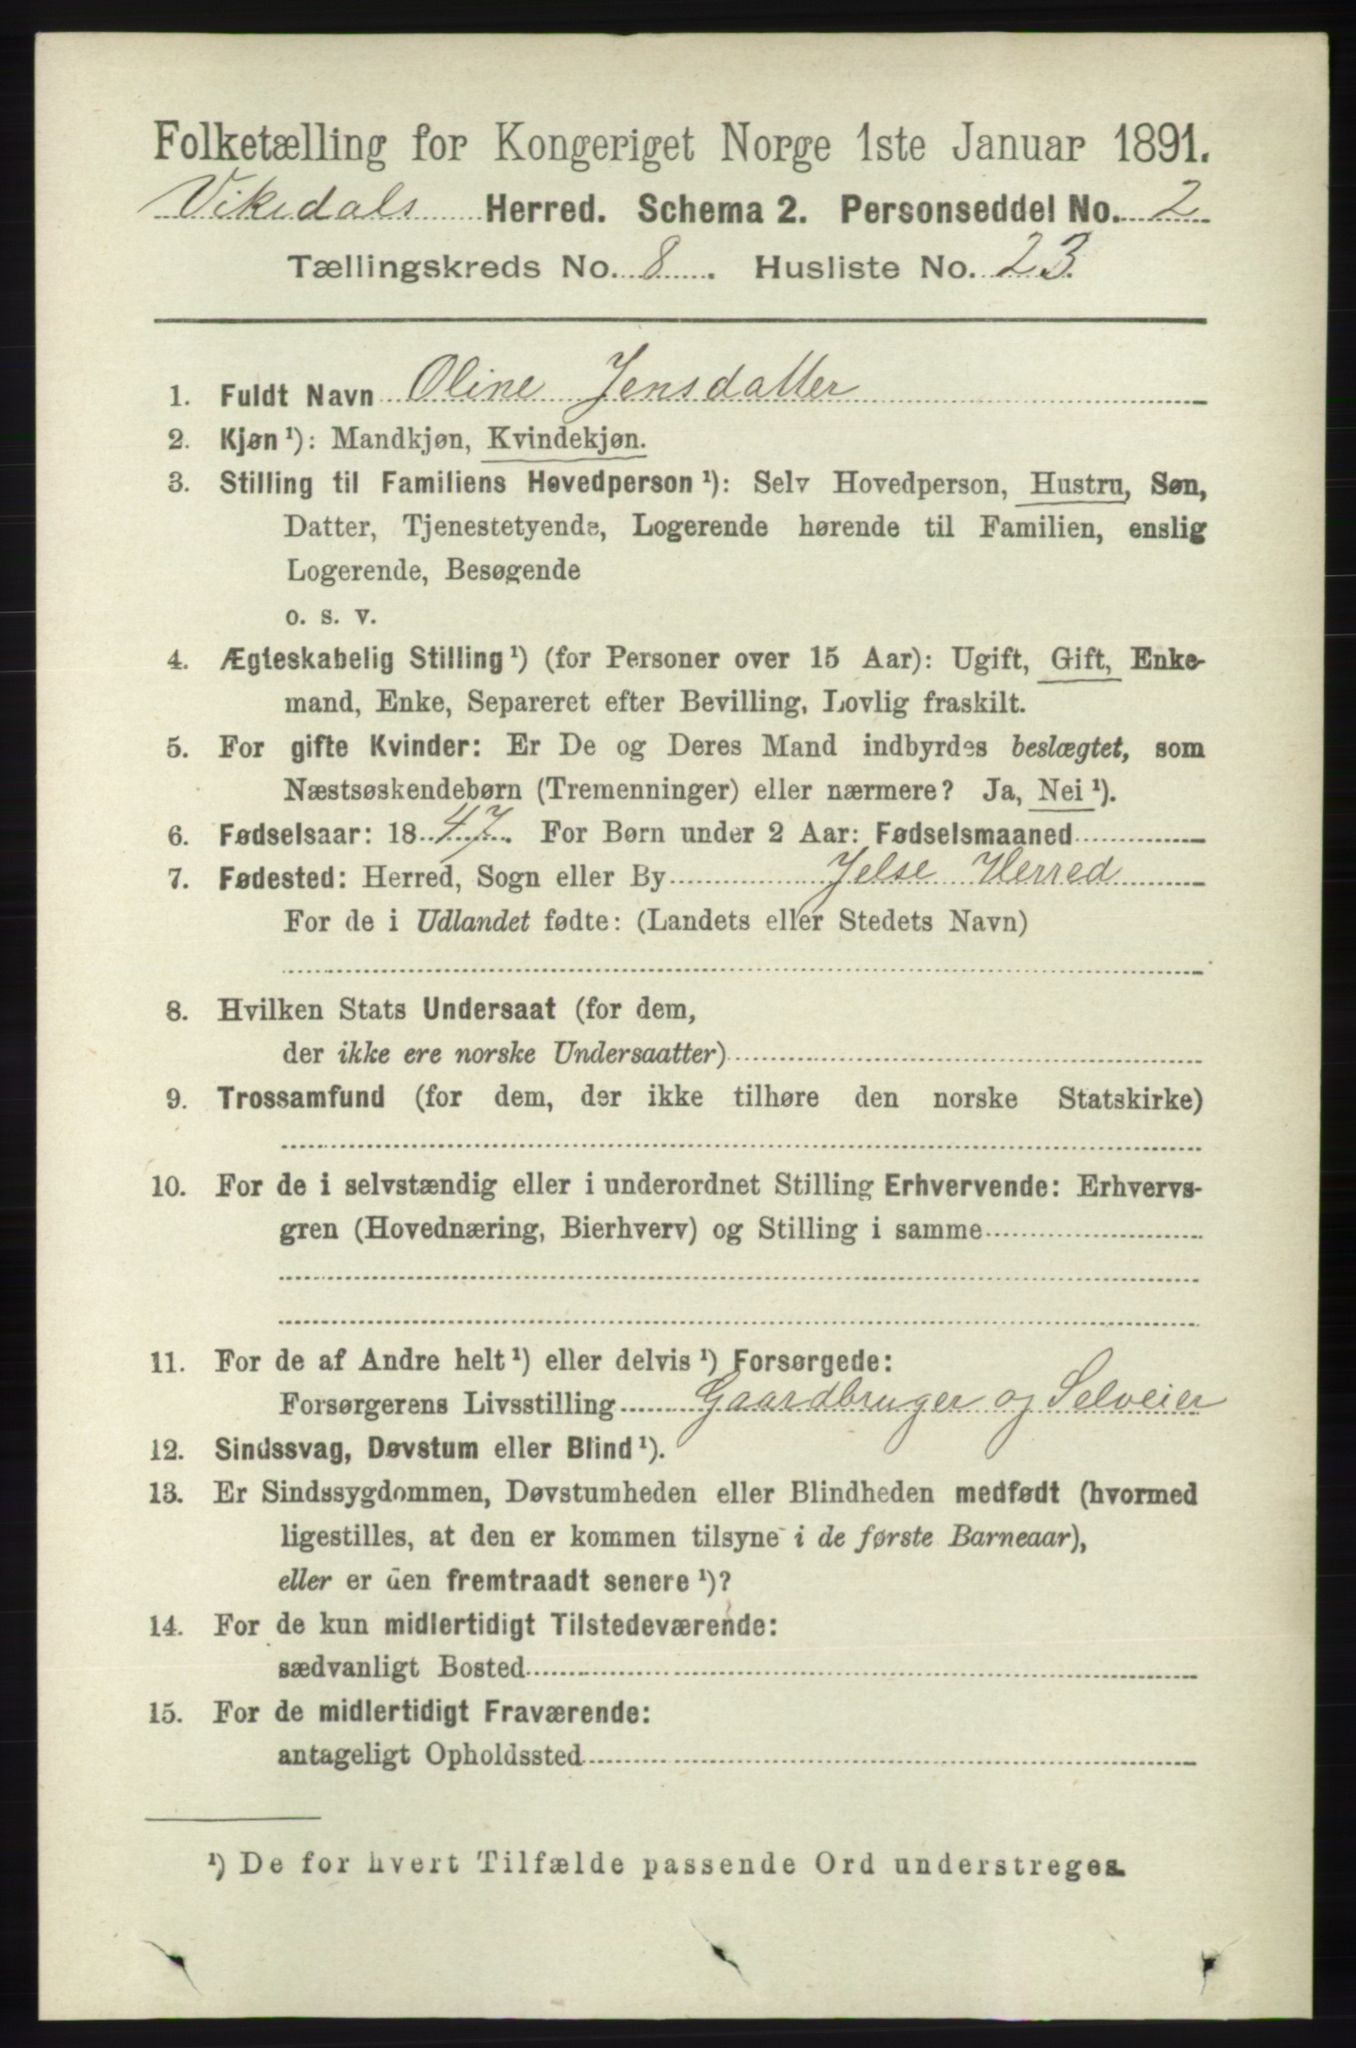 Folketælling for Kongeriget Norge 1ste Januar 1891.
Vikedals Herred. Schema 2. Personseddel No. 2
Tællingskreds No. 8. Husliste No. 23.
1. Fuldt Navn Oline Jensdatter
2. Kjøn ¹): Mandkjøn, Kvindekjøn.
3. Stilling til Familiens Hovedperson ¹): Selv Hovedperson, Hustru, Søn,
Datter, Tjenestetyende, Logerende hørende til Familien, enslig
Logerende, Besøgende
o. s. v.
4. Ægteskabelig Stilling ¹) (for Personer over 15 Aar): Ugift, Gift, Enke-
mand, Enke, Separeret efter Bevilling, Lovlig fraskilt.
5. For gifte Kvinder: Er De og Deres Mand indbyrdes beslægtet, som
Næstsøskendebørn (Tremenninger) eller nærmere? Ja, Nei ¹).
6. Fødselsaar: 1847. For Børn under 2 Aar: Fødselsmaaned
7. Fødested: Herred, Sogn eller By Jelse Herred
For de i Udlandet fødte: (Landets eller Stedets Navn)
8. Hvilken Stats Undersaat (for dem,
der ikke ere norske Undersaatter)
9. Trossamfund (for dem, der ikke tilhøre den norske Statskirke)
10. For de i selvstændig eller i underordnet Stilling Erhvervende: Erhvervs-
gren (Hovednæring, Bierhverv) og Stilling i samme
11. For de af Andre helt ¹) eller delvis ¹) Forsørgede:
Forsørgerens Livsstilling Gaardbruger og Selveier
12. Sindssvag, Døvstum eller Blind ¹).
13. Er Sindssygdommen, Døvstumheden eller Blindheden medfødt (hvormed
ligestilles, at den er kommen tilsyne i de første Barneaar),
eller er den fremtraadt senere ¹)?
14. For de kun midlertidigt Tilstedeværende:
sædvanligt Bosted
15. For de midlertidigt Fraværende:
antageligt Opholdssted
¹) De for hvert Tilfælde passende Ord understreges.